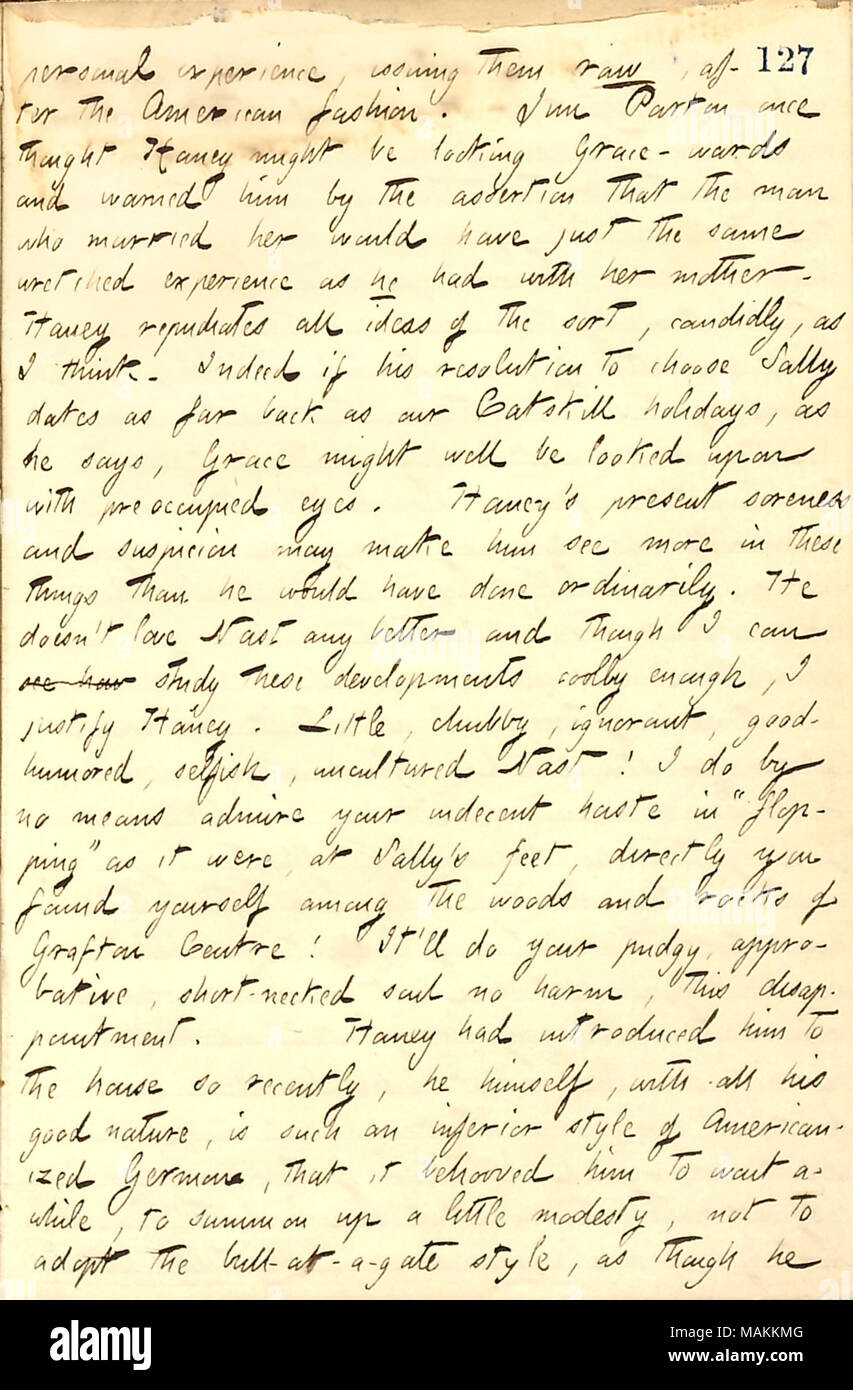 127
personal experience, issuing them raw, af-
ter the American fashion. Jim Parton once
thought Haney might be looking Grace-wards
and warned him by the assertion that the man
who married her would have just the same
wretched experience as he had with her mother.
Haney repudiates all ideas of the sort, candidly, as
I think. Indeed if his resolution to choose Sally
dates as far back as our Catskill holidays, as
he says, Grace might well be looked upon
with preoccupied eyes. Haney's present soreness
and suspicion may make him see more in these
things than he would have done ordinarily. He
doesn't love Nast any better and though I can
see how study these developments coolly enough, I
justify Haney. Little, chubby, ignorant, good-
humored, selfish, uncultured Nast! I do by
no means admire your indecent haste in "flop-
ping" as it were, at Sally's feet, directly you
found yourself among the woods and rocks of
Grafton Centre! It'll do your pudgy, appro-
bative, short-necked soul no harm, this disap-
pointment. Haney had introduced him to
the house so recently, he himself, with all his
good nature, is such an inferior style of American-
ized German, that it behooved him to wait a-
while, to summon up a little modesty, not to
adopt the bull-at-a-gate style, as though he
alamy
Image ID: MAKKMG
www.alamy.com